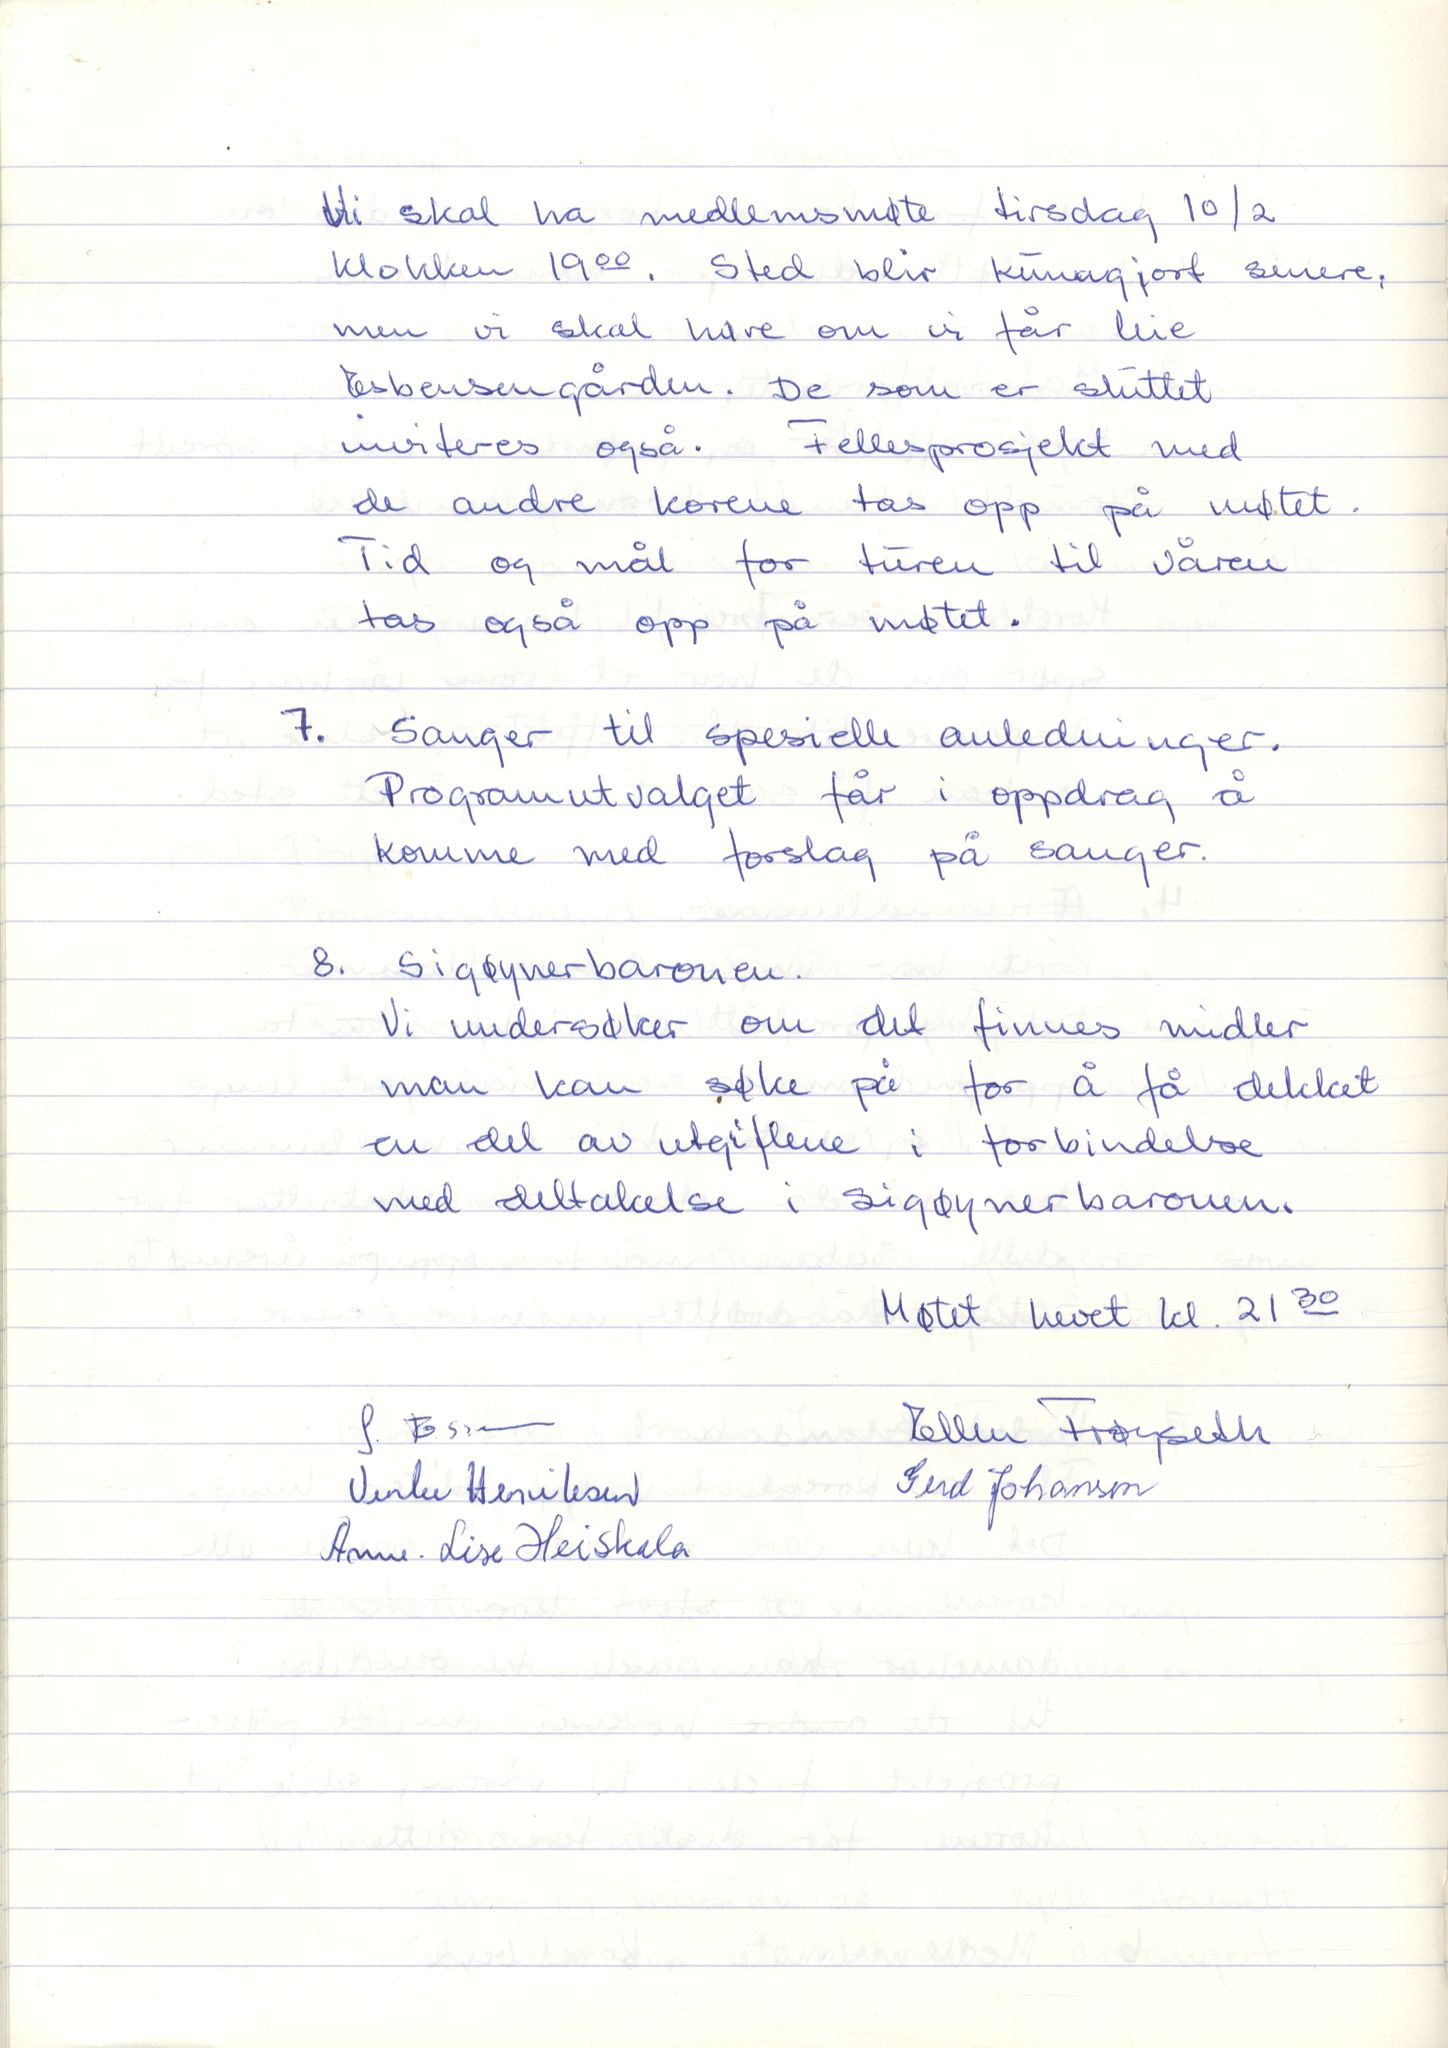 Vi skal ha medlemsmøte tirsdag 10/2
klokken 19⁰⁰. Sted blir kunngjort senere,
men vi skal høre om vi får leie
Esbensengården. De som er sluttet
inviteres også. Fellesprosjekt med
de andre korene tas opp på møtet.
Tid og mål for turen til våren
tas også opp på møtet.
7. Sanger til spesielle anledninger.
Programutvalget får i oppdrag å
komme med forslag på sanger.
8. Sigøynerbaronen.
Vi undersøker om det finnes midler
man kan søke på for å få dekket
en del av utgiftene i forbindelse
med deltakelse i sigøynerbaronen.
Møtet hevet kl. 21³⁰
Ellen Frøyseth
Henriksen Gerd Johanson
Anne-Lise Heiskala